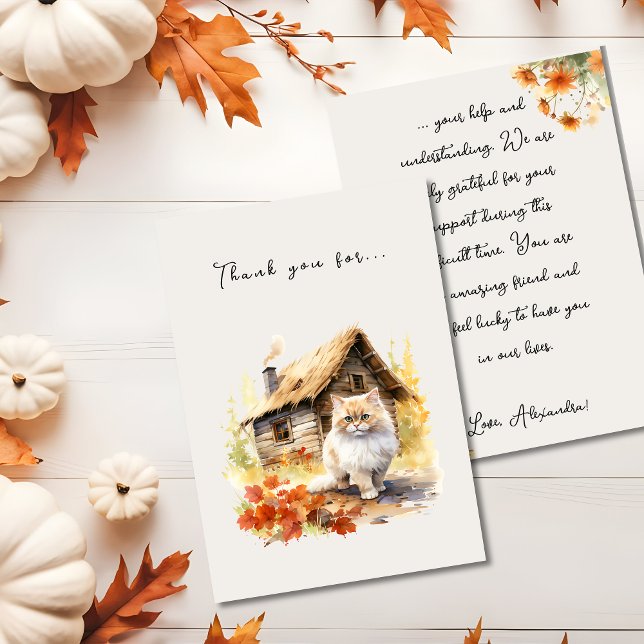 Thank you for...
... your help and
understanding. We are
grateful for your
during this
time. You are
amazing friend and
feel lucky to have you
in our lives.
Love, Alexandra!